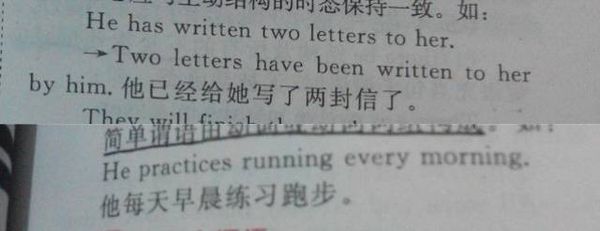 与主动结构的时态保持一致。如:
He has written two letters to her.
→Two letters have been written to her
by him. 他已经给她写了两封信了。
They will finish
简单谓语由动词或动词词组构成。如:
He practices running every morning.
他每天早晨练习跑步。